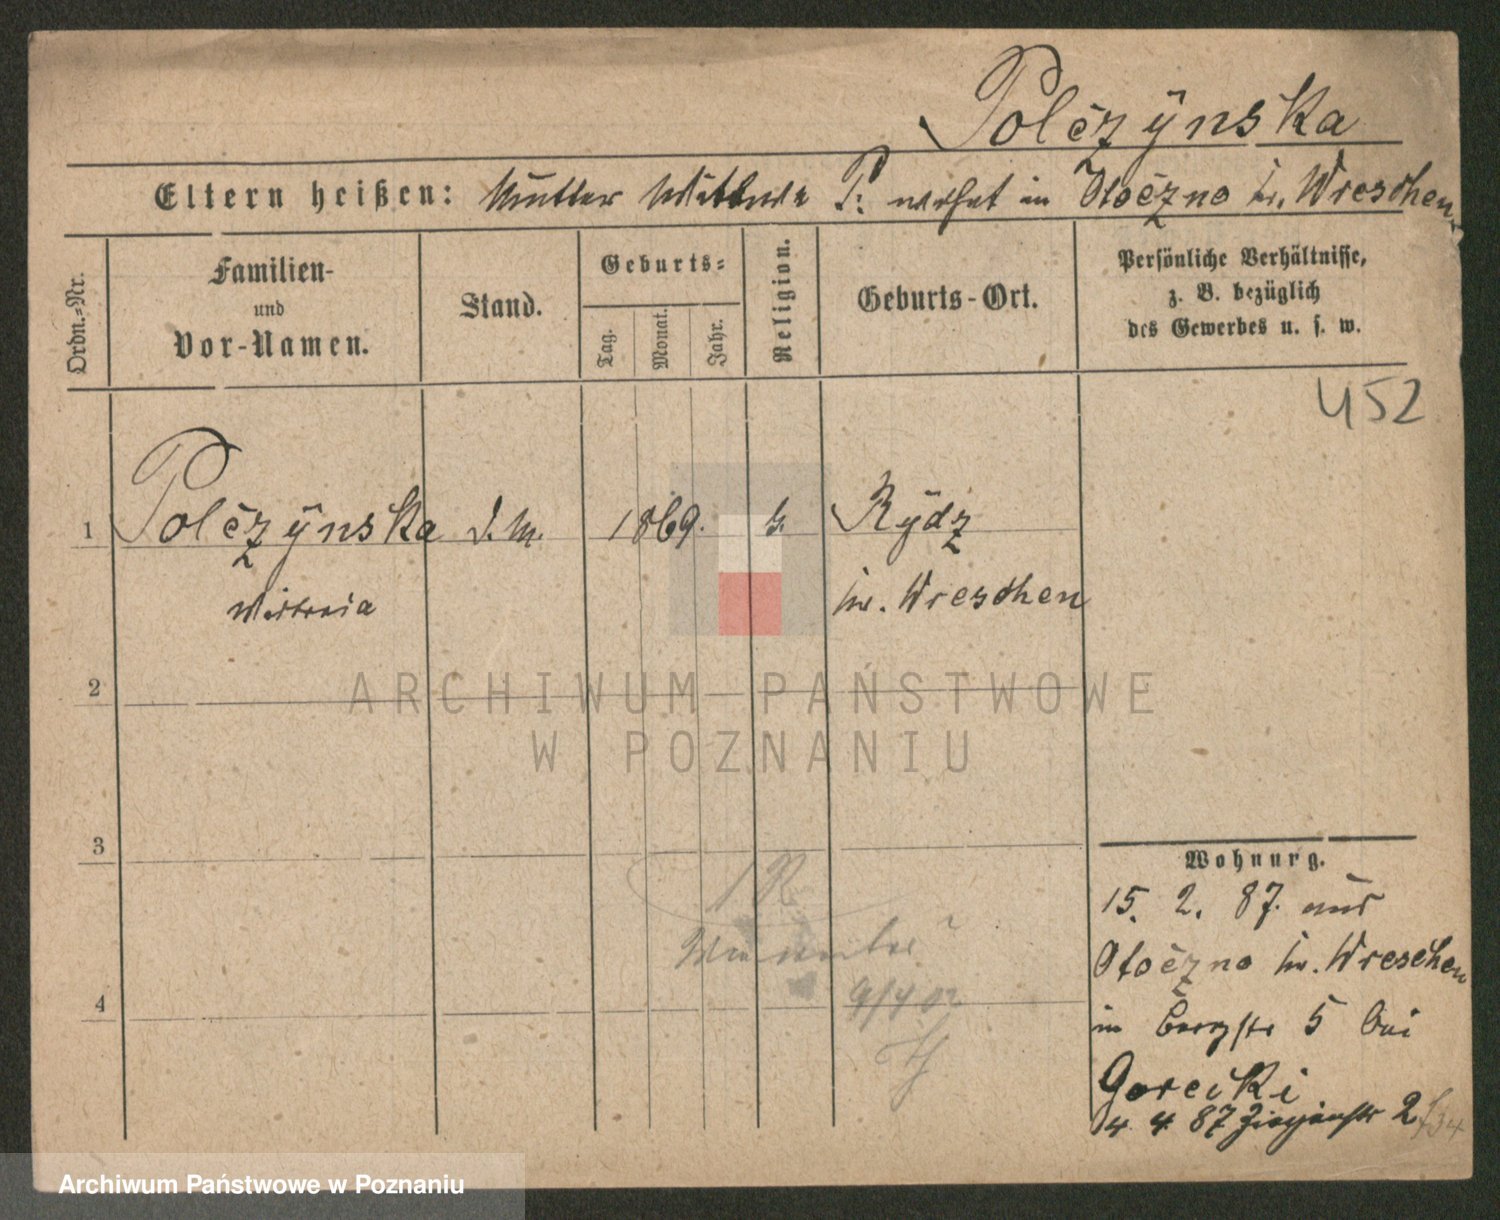 Polczÿnska
Eltern heißen: Mutter Wittwe P. wohnt in Otoczno kr. Wreschen
Ordn.=Nr.
Familien-
und
Vor-Namen.
Stand.
Geburts=
Tag.
Monat.
Jahr.
Religion.
Geburts-Ort.
Persönliche Verhältnisse,
z. B. bezüglich
des Gewerbes u. s. w.
452
1 Polczÿnska D. M. 1869. k. Rÿdz
Victoria kr. Wreschen
2
ARCHIWUM PAŃSTWOWE
W POZNANIU
3
Wohnung.
15. 2. 87. aus
Otoczno kr. Wreschen
in Bergstr 5 bei
Gorecki
4
9/4 02
4. 4. 87 Ziegenstr 2
Archiwum Państwowe w Poznaniu